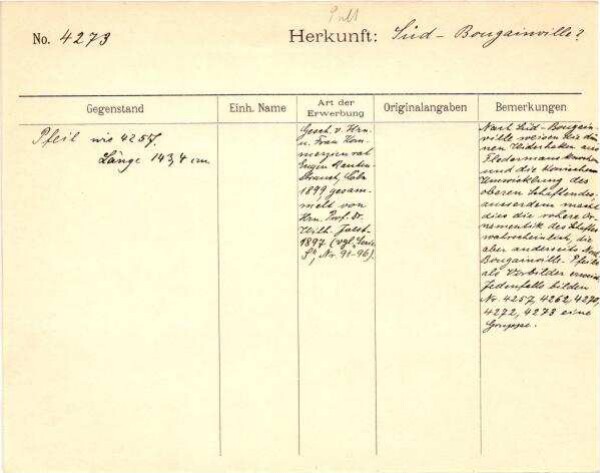 Pult
No. 4273 Herkunft: Süd-Bougainville?
Gegenstand Einh. Name Art der Erwerbung Originalangaben Bemerkungen
Pfeil wie 4257.
Länge 143,4 cm.
Gesch. v. Hrn.
u. Frau Kom-
merzienrat
Eugen Rauten-
strauch, Cöln
1899, gesam-
melt von
Hrn. Prof. Dr.
Wilh. Joest
1897 (vgl.
Nr. 91-96).
Nach Süd-Bougain-
ville weisen die dün-
nen Widerhaken aus
Fledermausknochen
und die konische
Umwicklung des
oberen Schaftendes,
ausserdem macht
dies die rohere Or-
nementik des Schaftes
wahrscheinlich, die
aber anderseits Nord-
Bougainville-Pfeile
als Vorbilder erweist.
Jedenfalls bilden
Nr. 4257, 4262, 4270,
4272, 4273 eine
Gruppe.